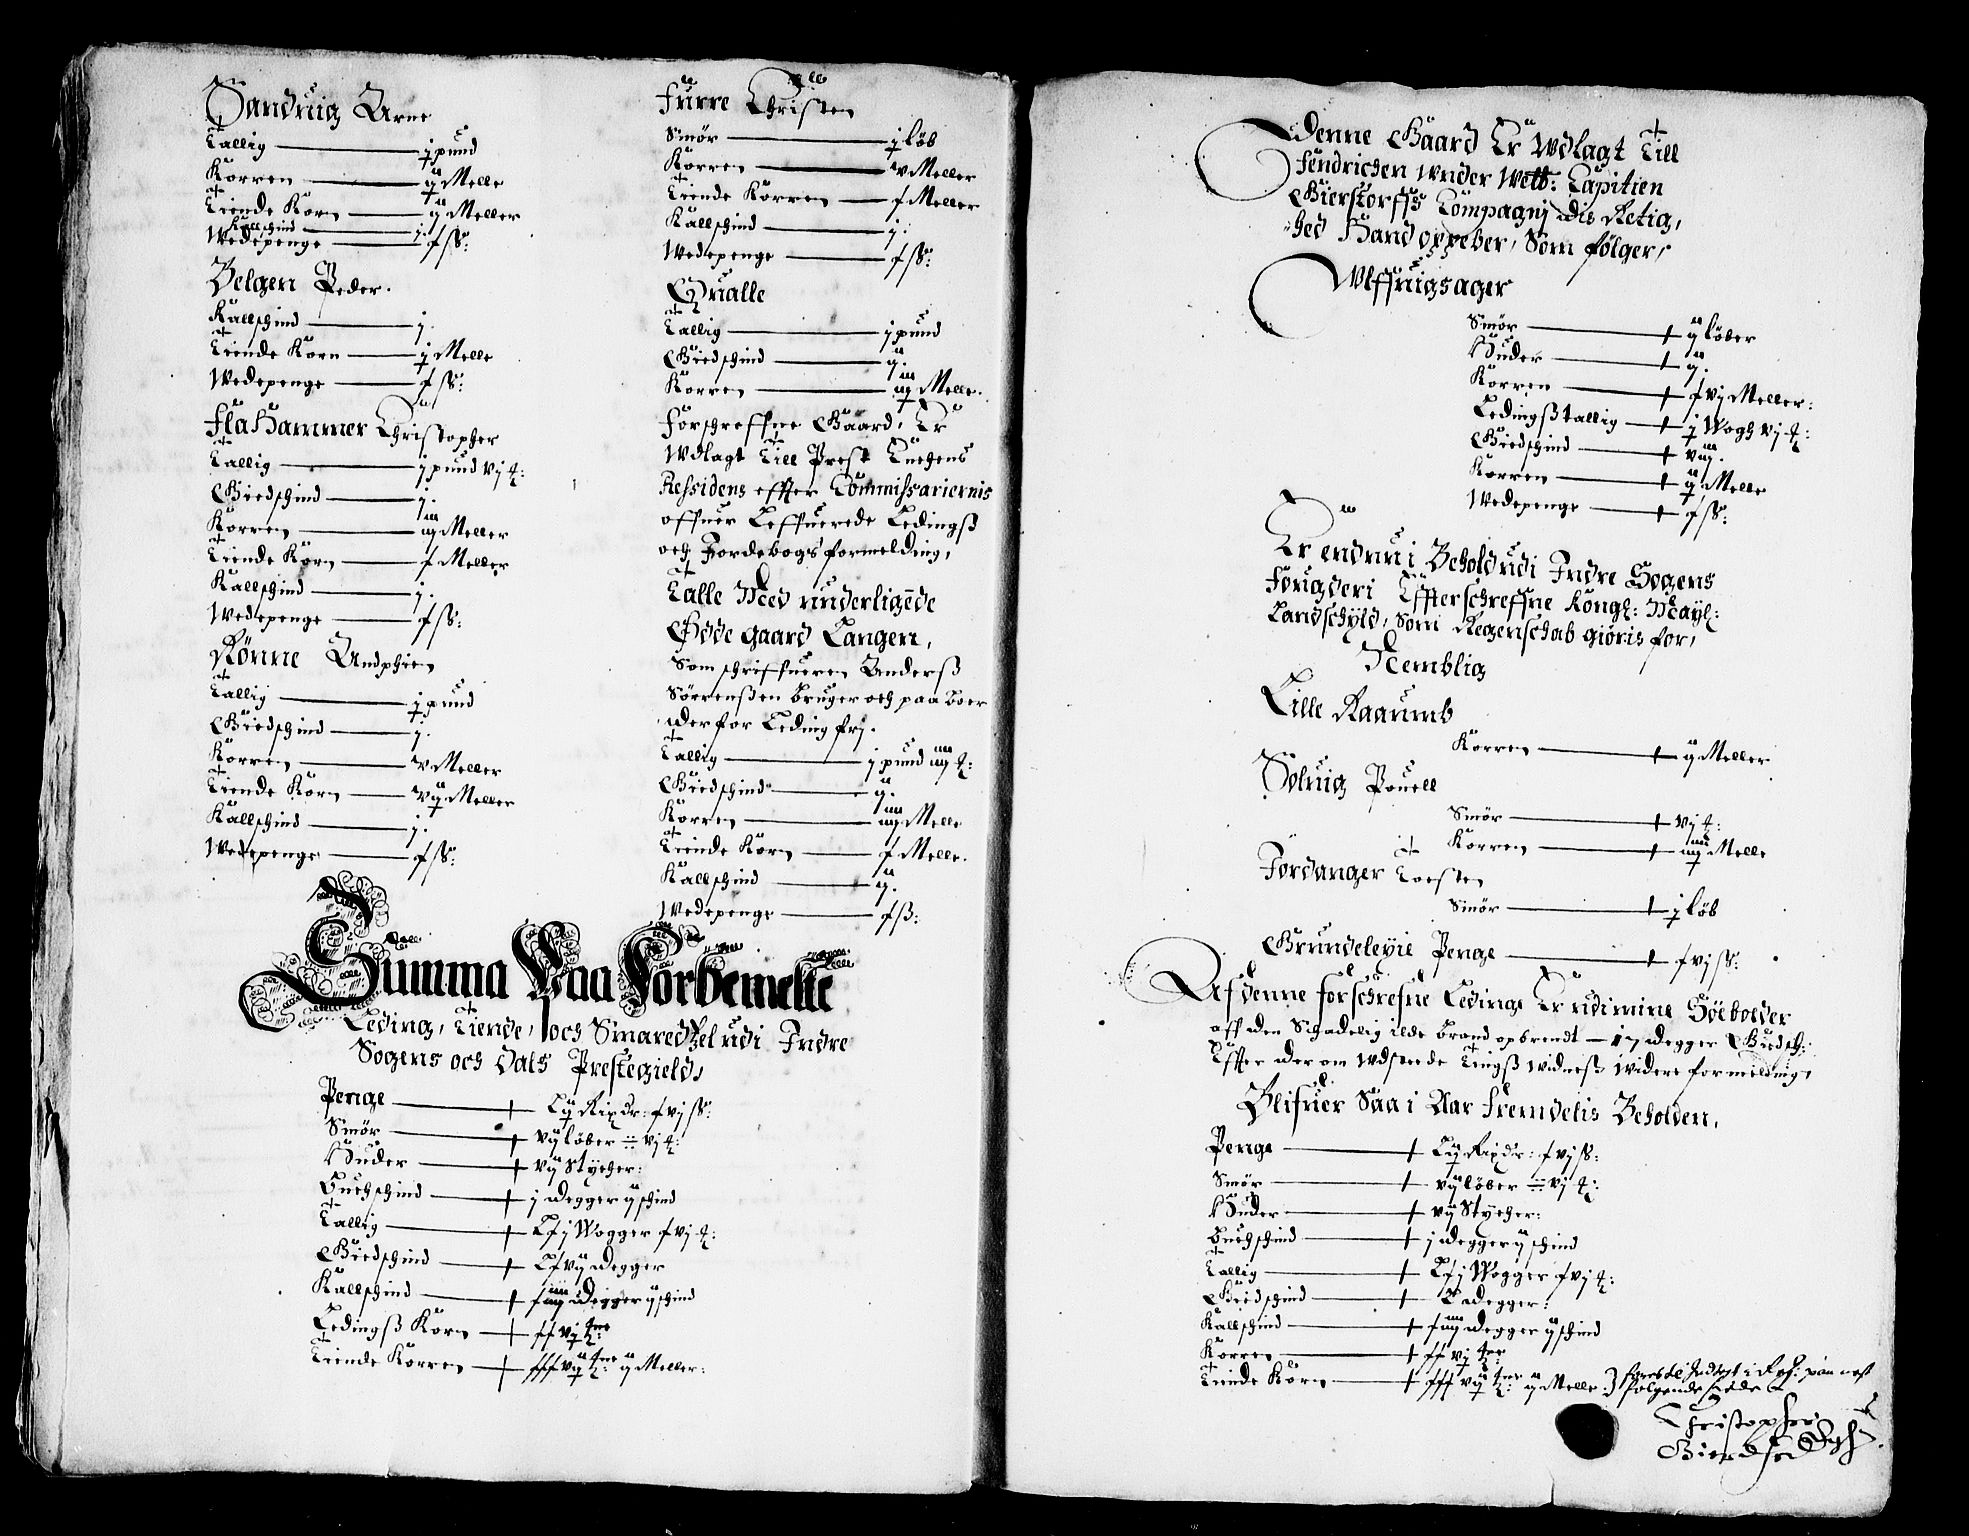 Sanduig Arne
Tallig — j pund
Korren — ij Melle
Tiende Korn — ij Meller
Kallschind — j.
Wedepenge — x ss:
Belgen Peder.
Kallschind — j.
Tiende Korn — j Melle
Wedepenge — x ss:
Flahammer Christopher
Tallig — j pund vj
Giedschind — j.
Korren — iij Meller
Tiende Korn — x Meller
Kallschind — j.
Wedepenge — x ss:
Rönne
Tallig — j pund
Giedschind — j.
Korren — v Meller
Tiende Korn — vij Meller
Kallschind — j.
Wedepenge — x ss:
Furre Christen
Smör — j löb
Korren — v Meller
Tiende Korren — x Meller
Kallschind — j.
Wedepenge — x ss:
Qualle
Tallig — j pund
Giedschind — ij.
Korren — iij Melle.
Forschreffne Gaard, Er
Udlagt Till Prest Enchens
Ressidens effter Commissariernis
offuer Leffuerede Ledingß
och Jordebogs formelding,
Talle Med underligede
Øde gaard Langen,
Som schriffueren Anderß
Sörrensßen bruger och paa boer
der for Leding fri.
Tallig — j pund iiij
Giedschind — ij.
Korren — iiij Melle
Tiende Korn — x Melle.
Kallschind — ij.
Wedepenge — x ß:
Summa Paa Forbemelte
Leding, Tiende, och Smaredtzel udi Indre
Sogens och Dals Prestegield,
Penge — Lij Rixdr: xvj ss:
Smör — vij löber vj
Huder — vij Stycher:
Buchschind — j degger ij schind
Tallig — Lxj Wogger xvj
Giedschind — Lxvij degger
Kallschind — xiiij degger ij schind
Ledingß Korn — xxvj tne:
Tiende Korren — xxxvij tne: ij Meller:
Denne Gaard Er Udlagt Till
Fendrichen under Welb: Capitien
Gierstorffs Compagnj dis Retig,
hed Hand oppeber, Som fölger,
Ulffuigsager
Smör — ij löber
Huder — ij.
Korren — xvj Meller:
Ledingßtallig — j Wogh vj
Giedschind — viij.
Korren — ij Melle
Wedepenge — x ss:
Er endnu i Behold udi Indre Sogens
Fougderi Effterschreffne Kongl: Mayl:
Landschyld, Som Regenschab giöris for,
Nemblig
Lille Raaumb
Korren — ij Meller
Soluig Pouell
Smör — vj
Korren — iiij Melle
Jordanger Torsten
Smör — j löb
Grundeleyie Penge — xvj ss:
Af denne forschrefne Leding Er udi mine Söeboeder
aff den Schadelig ilde brand opbrendt — 17 degger Giedsch:
Effter der om Udsteede Tingß Widneß widere formelding,
Blifuer Saa i Aar Fremdelis Beholden,
Penge — Lij Rixdr: xvj ss:
Smör — vij löber vj
Huder — vij Stycher:
Buchschind — j degger ij schind
Tallig — Lxj Wogger xvj
Giedschind — L degger:
Kallschind — xiiij degger ij schind
Korren — xxvj tne:
Tiende Korn — xxxvij tne: ij Melle
følgende side
Christopher